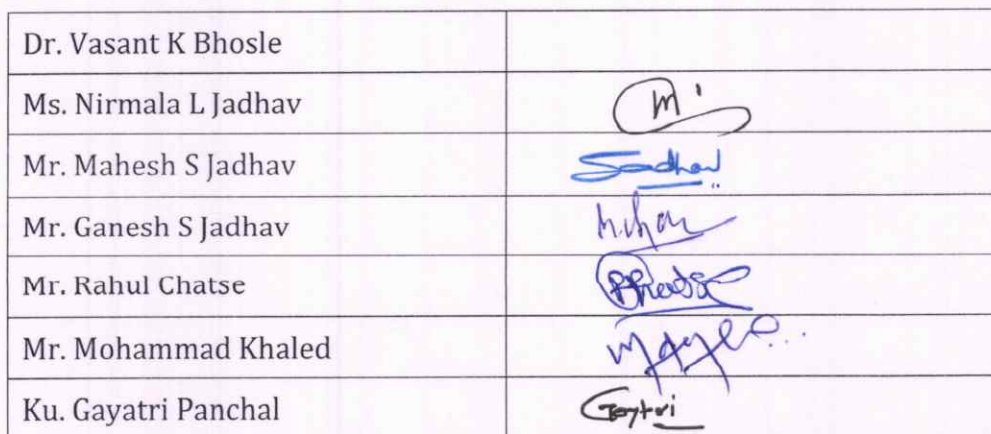 Dr. Vasant K Bhosle
Ms. Nirmala L Jadhav
Mr. Mahesh S Jadhav
Mr. Ganesh S Jadhav
Mr. Rahul Chatse
Mr. Mohammad Khaled
Ku. Gayatri Panchal Gaytri